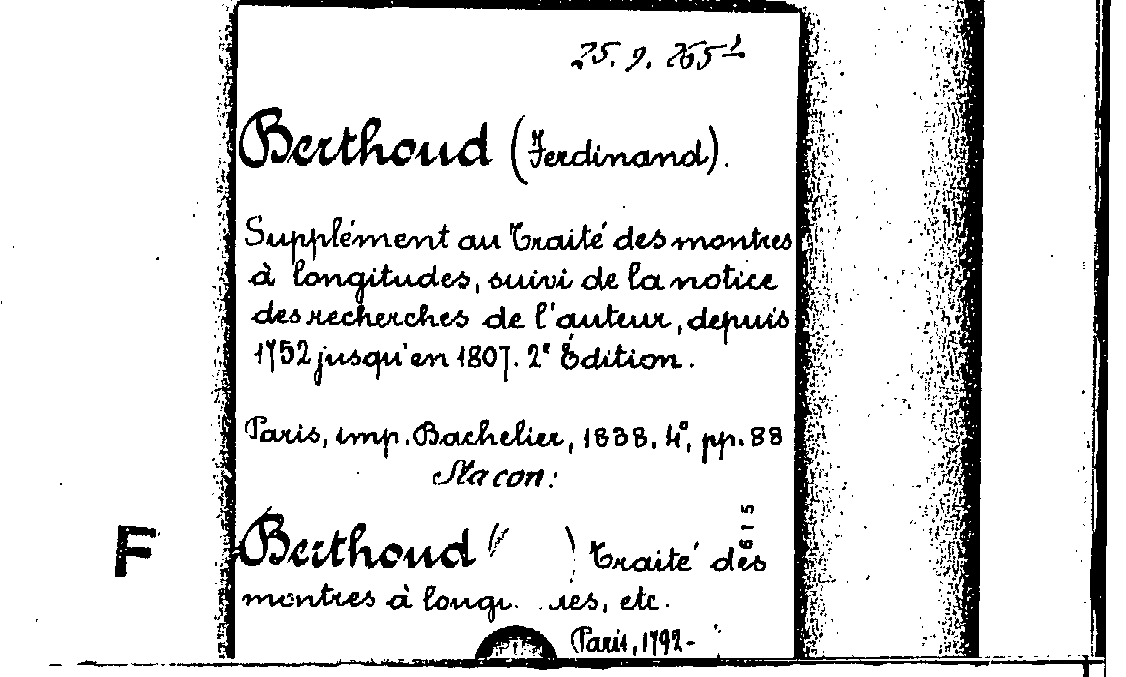 25. 9. 265¹
Berthoud (Ferdinand).
Supplément au Traité des montres
à longitudes, suivi de la notice
des recherches de l'auteur, depuis
1752 jusqu'en 1807. 2ᵉ Édition.
Paris, imp. Bachelier, 1838. 4°, pp. 88
Sta con:
615
Berthoud ( ) Traité des
montres à longi. .res, etc.
Paris, 1792-
F